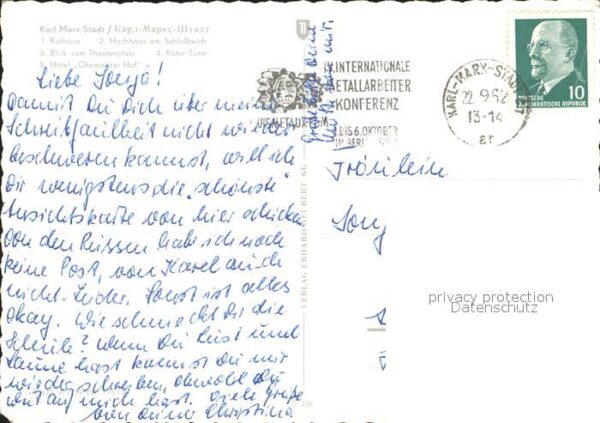 Karl-Marx-Stadt / Карл-Маркс-Штадт
1. Rathaus 2. Hochhaus am Schloßteich
3. Blick zum Theaterplatz 4. Roter Turm
5. Hotel „Chemnitzer Hof"
Liebe Sonja!
Damit Du Dich über meine
Schreibfaulheit nicht wieder
beschweren kannst, will ich
Dir wenigstens die „schönste"
Ansichtskarte von hier schicken
von den Russen hab ich noch
keine Post, von Karel auch
nicht. Leider. Sonst ist alles
okay. Wie schmeckt Dir die
Schule? Wenn Du Lust und
Laune hast kannst Du mir
wieder schreiben, obwohl Du
Wut auf mich hast. Viele Grüße
von Deiner Christina
VERLAG ERHARD NEUBERT KG
IV. INTERNATIONALE
METALLARBEITER
KONFERENZ
BIS 6. OKTOBER
KARL-MARX-STADT
22. 9. 62
13-14
ar
10
DEUTSCHE
DEMOKRATISCHE REPUBLIK
Fräulein
Sonj
privacy protection
Datenschutz